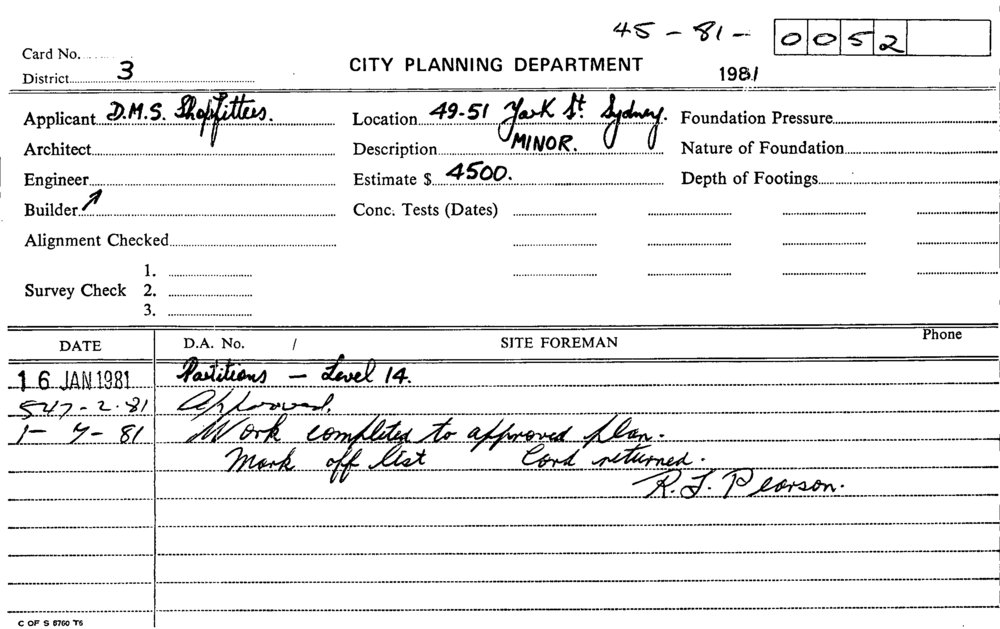 45-81- 0052
Card No.
District 3 CITY PLANNING DEPARTMENT 1981
Applicant D.M.S. Shopfitters. Location 49-51 York St. Sydney. Foundation Pressure
Architect Description MINOR. Nature of Foundation
Engineer Estimate $ 4500. Depth of Footings
Builder Conc. Tests (Dates)
Alignment Checked
1.
Survey Check 2.
3.
DATE D.A. No. / SITE FOREMAN Phone
16 JAN 1981 Partitions - Level 14.
-2.81 Approved.
1-7-81 Work completed to approved plan.
Mark off list Card returned.
R. J. Pearson.
C OF S 8760 T5